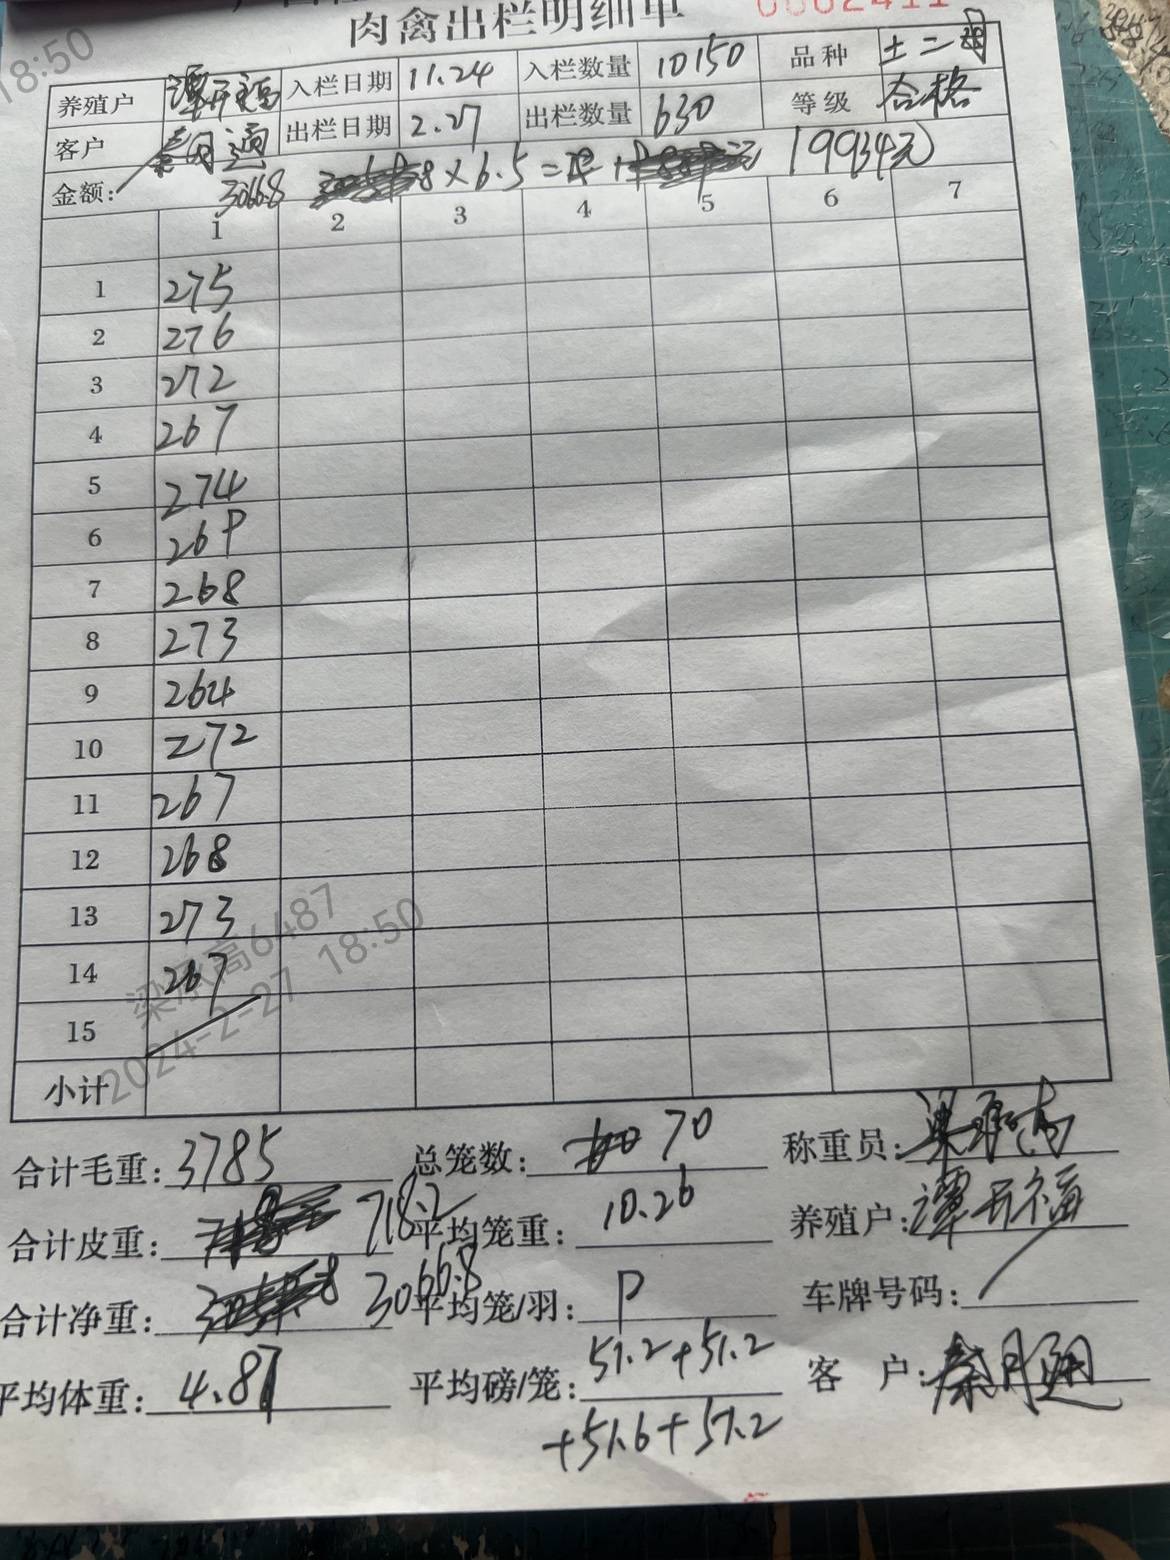 肉禽出栏明细单
养殖户 谭开福 入栏日期 11.24 入栏数量 10150 品种 土二
客户 出栏日期 2.27 出栏数量 630 等级 合格
金额: 3066.8 ×6.5= 19934元
1 2 3 4 5 6 7
1 275
2 276
3 272
4 267
5 274
6 269
7 268
8 273
9 264
10 272
11 267
12 268
13 273
14 267
15
小计
合计毛重: 3785 总笼数: 70 称重员: 梁承高
合计皮重: 718.2 平均笼重: 10.26 养殖户: 谭开福
合计净重: 3066.8 平均笼/羽: 9 车牌号码:
平均体重: 4.87 平均磅/笼: 51.2+51.2 客 户:
+51.6+51.2
18:50
梁承高6487
2024-2-27 18:50